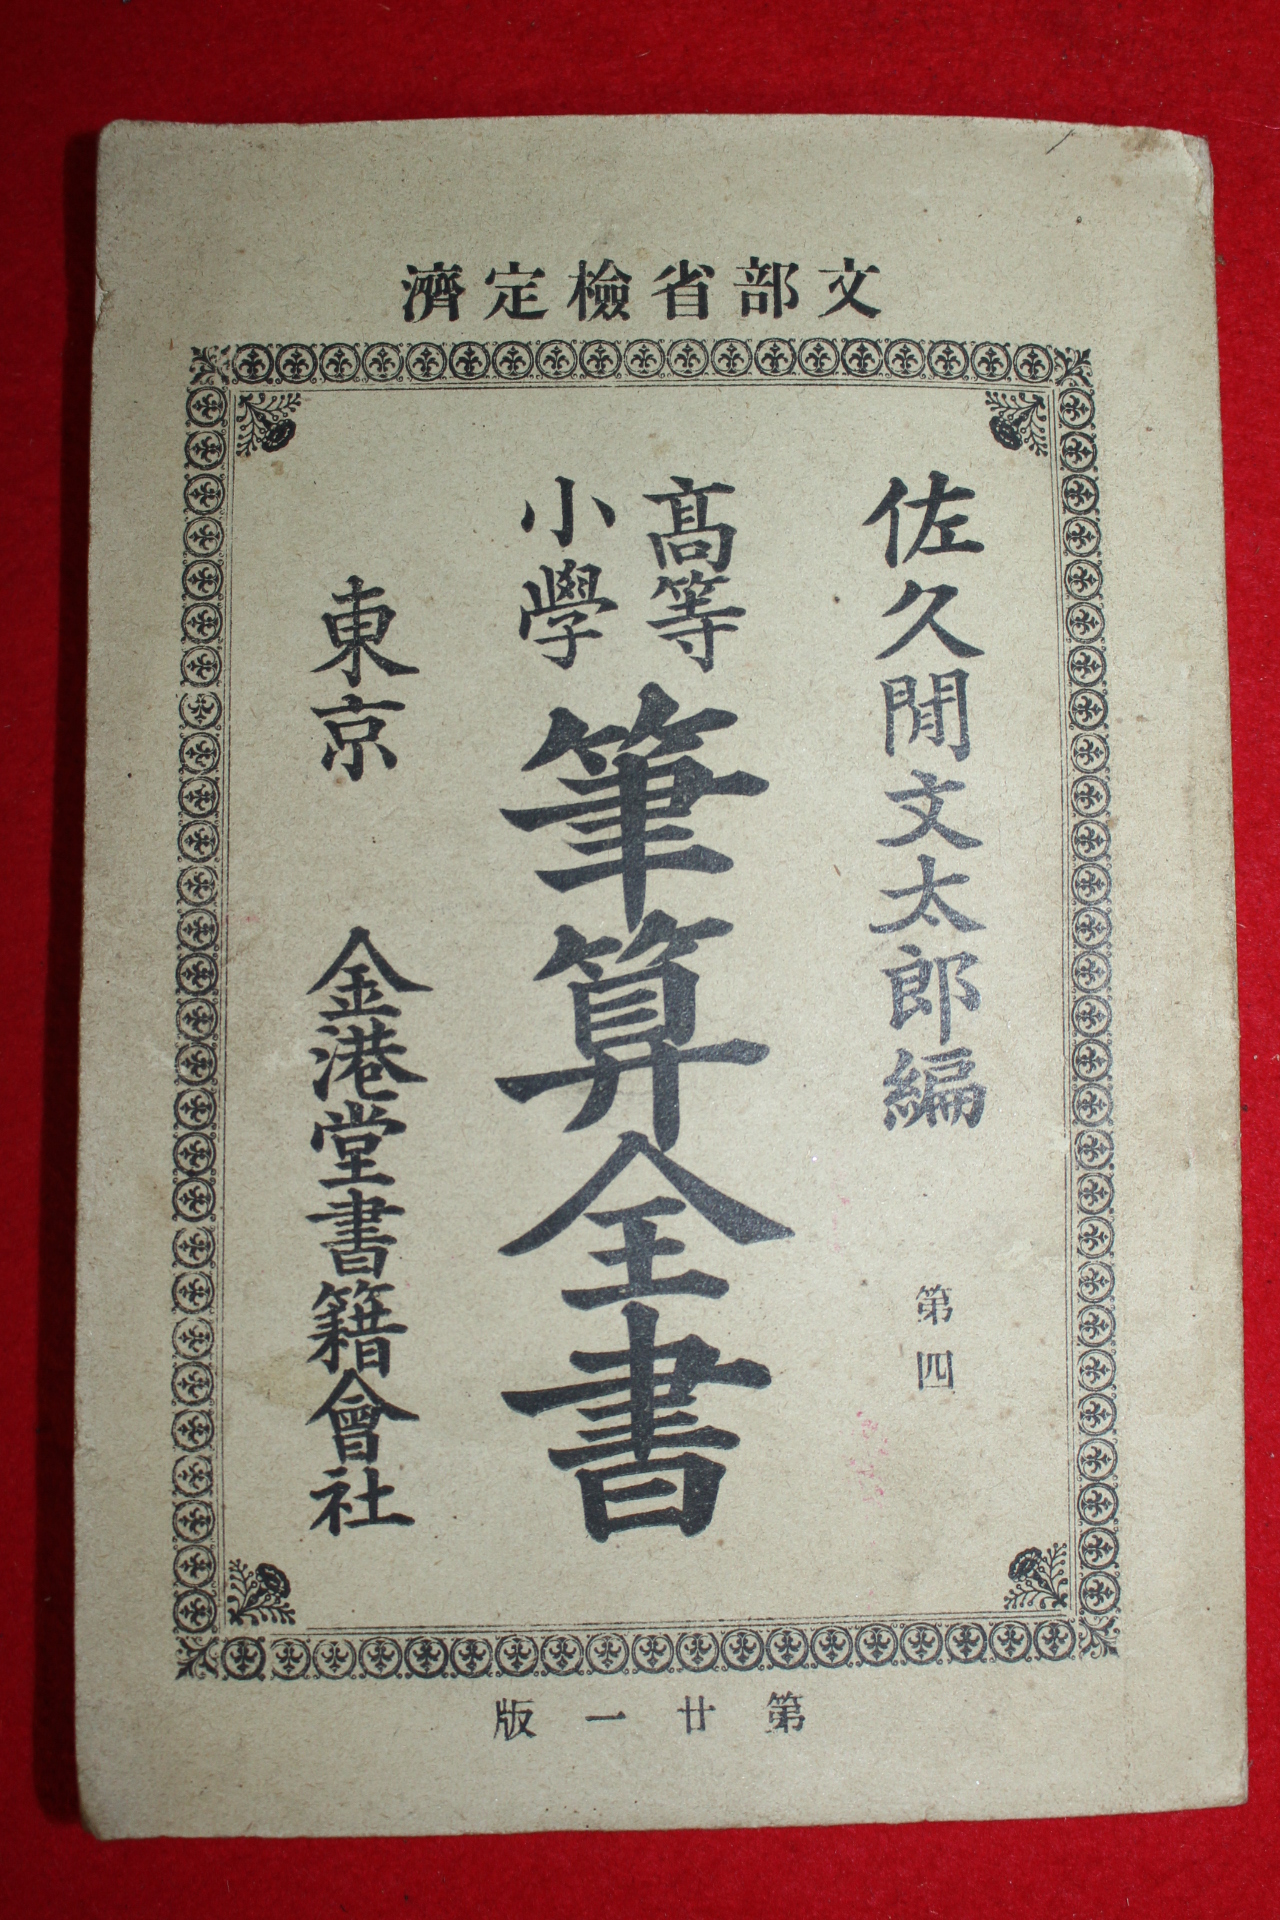 文部省檢定濟
佐久間文太郎編
第四
高等
小學
筆算全書
東京 金港堂書籍會社
第廿一版